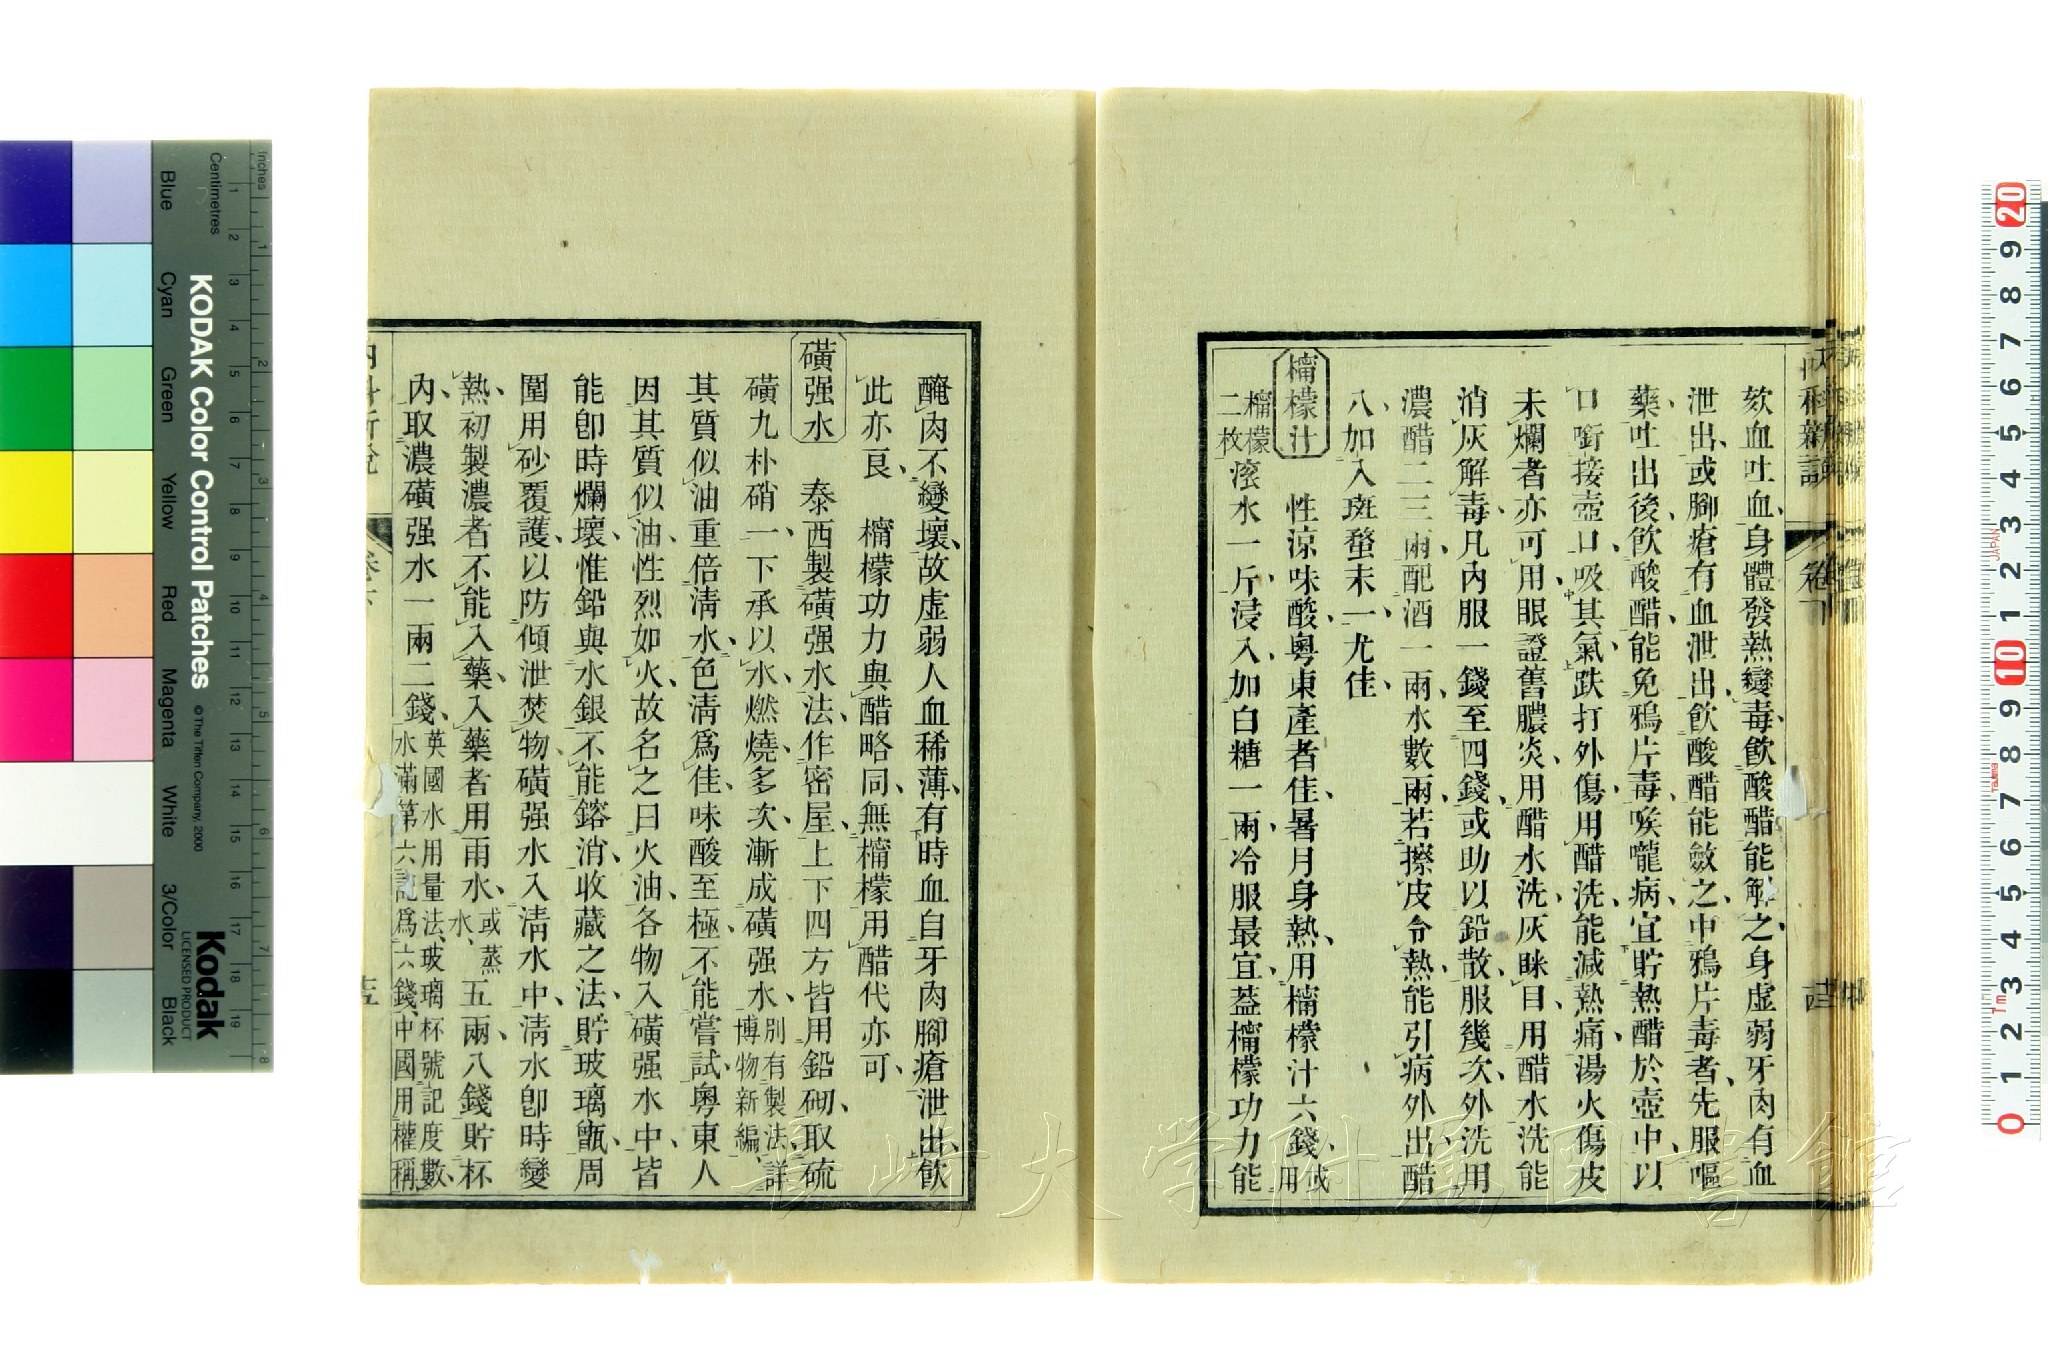 欬血吐血身體發熱變毒飲酸醋能解之身虚弱牙肉有血
泄出或腳瘡有血泄出飲酸醋能斂之中鴉片毒者先服嘔
藥吐出後飲酸醋能免鴉片毒喉嚨病宜貯熱醋於壺中以
口銜接壺口吸其氣跌打外傷用醋洗能減熱痛湯火傷皮
未爛者亦可用眼證舊膿炎用醋水洗灰眯目用醋水洗能
消灰解毒凡內服一錢至四錢或助以鉛散服幾次外洗用
濃醋二三兩配酒一兩水數兩若擦皮令熱能引病外出醋
八加入斑蝥末一尤佳
檸檬汁 性涼味酸粵東產者佳暑月身熱用檸檬汁六錢或用
檸檬二枚滾水一斤浸入加白糖一兩冷服最宜蓋檸檬功力能
內科新說 卷下
醃肉不變壞故虚弱人血稀薄有時血自牙肉腳瘡泄出飲
此亦良 檸檬功力與醋略同無檸檬用醋代亦可
磺强水 泰西製磺强水法作密屋上下四方皆用鉛砌取硫
磺九朴硝一下承以水燃燒多次漸成磺强水別有製法詳博物新編
其質似油重倍清水色清爲佳味酸至極不能嘗試粵東人
因其質似油性烈如火故名之曰火油各物入磺强水中皆
能卽時爛壞惟鉛與水銀不能鎔消收藏之法貯玻璃甑周
圍用砂覆護以防傾泄焚物磺强水入清水中清水卽時變
熱初製濃者不能入藥入藥者用雨水或蒸水五兩八錢貯杯
內取濃磺强水一兩二錢英國水用量法玻璃杯號記度數水滿第六記爲六錢中國用權稱
長崎大学附属図書館
KODAK Color Control Patches
© The Tiffen Company, 2000
Kodak
LICENSED PRODUCT
Inches
Centimetres
Blue
Cyan
Green
Yellow
Red
Magenta
White
3/Color
Black